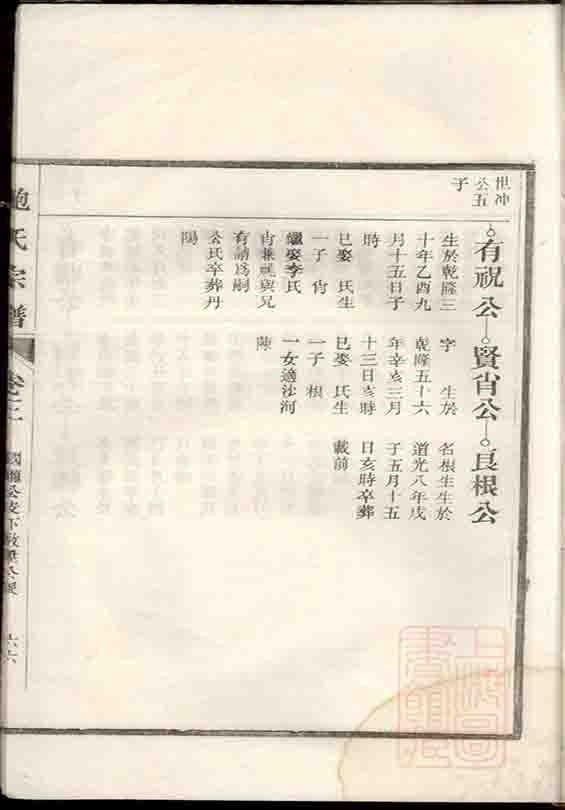 世冲
公五
子
有祝公
賢省公
良根公
生於乾隆三
十年乙酉九
月十五日子
時
已娶 氏生
一子 省
繼娶李氏
省兼祧與兄
有諧爲嗣
公氏卒葬丹
陽
字 生於
乾隆五十六
年辛亥三月
十三日亥時
已娶 氏生
一子 根
一女適沙河
陳
名根生生於
道光八年戊
子五月十五
日亥時卒葬
載前
鮑氏宗譜
卷三
六六
上海圖書館藏